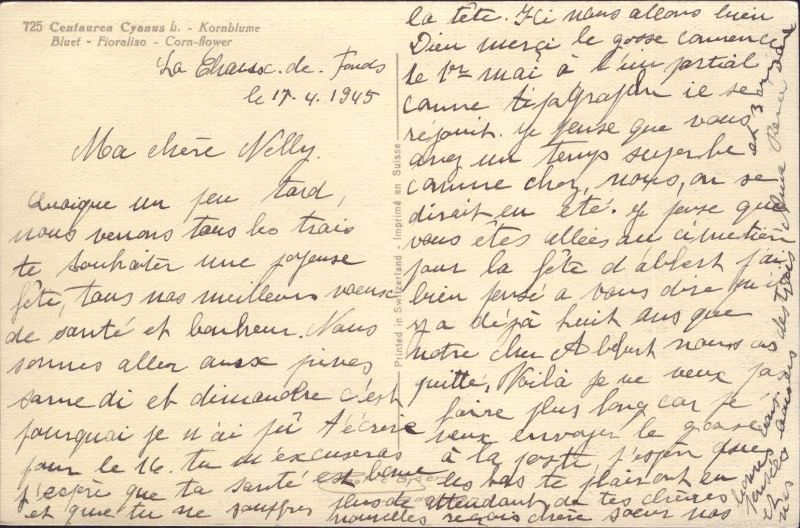 725 Centaurea Cyanus L. - Kornblume
Bluet - Fioraliso - Corn-flower
La Chaux-de-Fonds
le 17-4.1945
Ma chère Nelly.
Quoique un peu tard,
nous venons tous les trois
te souhaiter une joyeuse
fête, tous nos meilleurs voeux
de santé et bonheur. Nous
sommes aller aux
samedi et dimandre c'est
pourquoi je n'ai pû t'écrire
pour le 16. tu m'excuseras
j'espère que ta santé est bonne
et que tu ne souffres plus de
la tête. Ici nous allons bien
Dieu merci le gosse comence
le 1er mai à l'
comme tipografe il se
réjouit. je pense que vous
avez un temps superbe
comme chez, nous, on se
dirait en été. je pense que
vous êtes allées au cimetière
pour la fête d'albert j'ai
bien pensé a vous dire qu'il
y a déjà huit ans que
notre cher Albert nous as
quitté. Voilà je ne veux pas
faire plus long car je
veux envoyer le gosse
à la poste j'espère que
les bas te plairont en
attendant de tes chères
nouvelles reçois chère soeur nos
pensées
des trois
Printed in Switzerland - Imprimé en Suisse